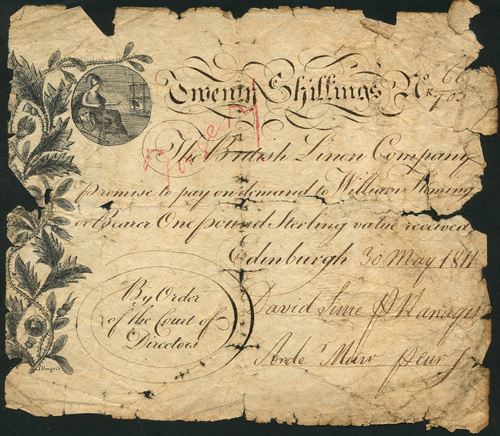 Twenty Shillings No 66/703
The British Linen Company
promise to pay on demand to William Fleming
or Bearer One pound Sterling value received
Edinburgh 30 May 1811
By Order
of the Court of
Directors
David